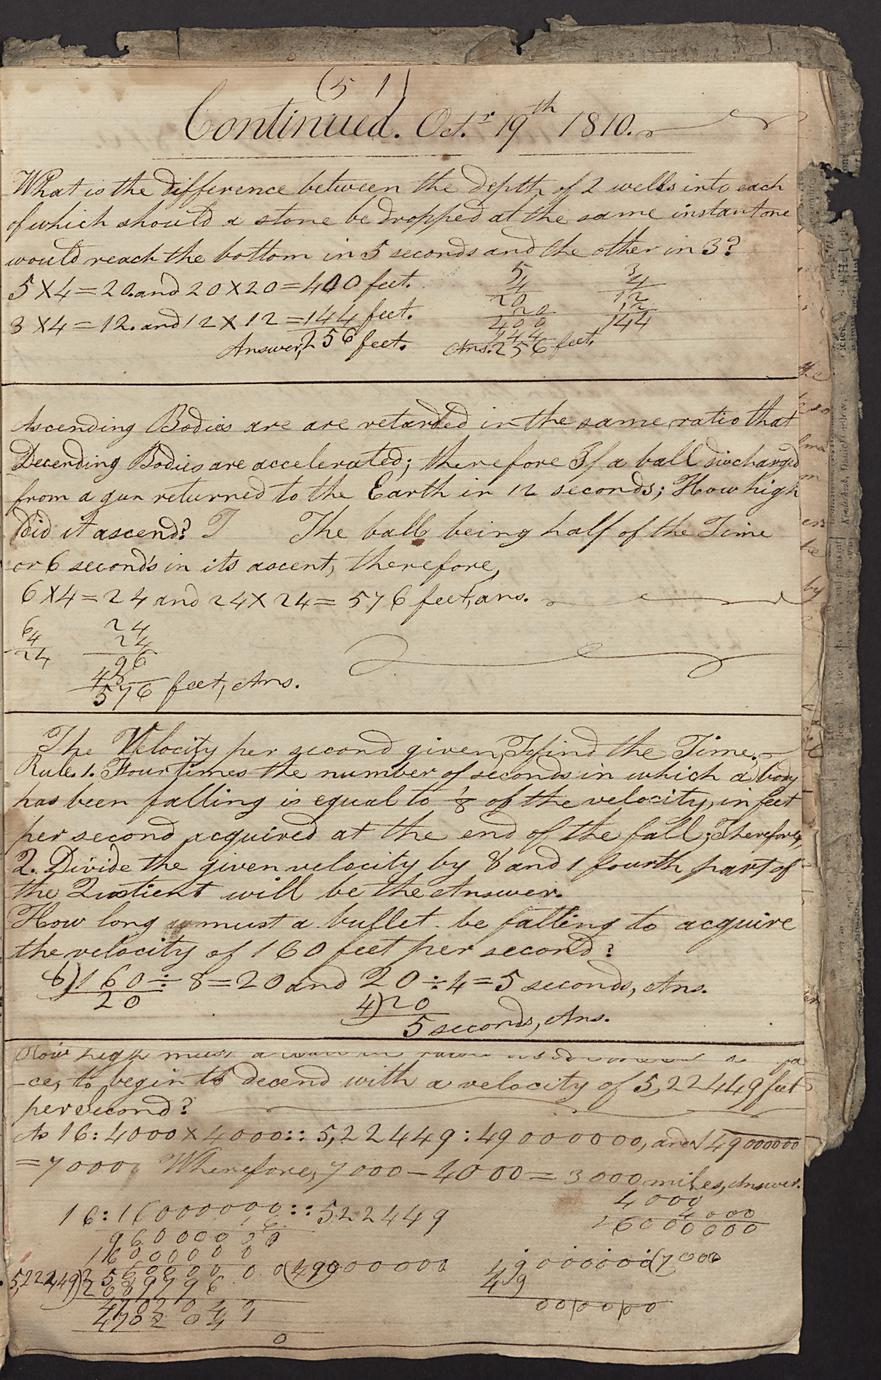 (5 1)
Continued. Oct.r 19th 1810.
What is the difference between the depth of 2 wells into each
of which should a stone be dropped at the same instant one
would reach the bottom in 5 seconds and the other in 3?
5 X 4 = 20. and 20 X 20 = 400 feet.
3 X 4 = 12. and 12 X 12 = 144 feet.
Answer, 256 feet.
5
4
20
20
400
144
Ans. 256 feet.
3
4
12
12
144
Ascending Bodies are are retarded in the same ratio that
Decending Bodies are accelerated; therefore If a ball discharged
from a gun returned to the Earth in 12 seconds; How high
did it ascend? T The ball being half of the Time
or 6 seconds in its ascent, therefore,
6 X 4 = 24 and 24 X 24 = 576 feet, ans.
6
4
24
24
24
96
48
576 feet, Ans.
The Velocity per second given, To find the Time.
Rule. 1. Four times the number of seconds in which a body
has been falling is equal to 1/8 of the velocity, in feet
per second acquired at the end of the fall; Therefore,
2. Divide the given velocity by 8 and 1 fourth part of
the Quotient will be the Answer.
How long must a bullet be falling to acquire
the velocity of 160 feet per second?
8)160 ÷ 8 = 20 and 20 ÷ 4 = 5 seconds, Ans.
20
4)20
5 seconds, Ans.
How high must a
ce, to begin to decend with a velocity of 5,22449 feet
per second?
As 16 : 4000 X 4000 :: 5,22449 : 49000000, and √49000000
= 7000. Wherefore, 7000 - 4000 = 3000 miles, Answer.
16 : 16000000 :: 522449
16
96000000
16000000
5,22449)256000000 0(49000000
2089796
4702041
4702041
0
4000
4000
16000000
49000000(7000
49
000000